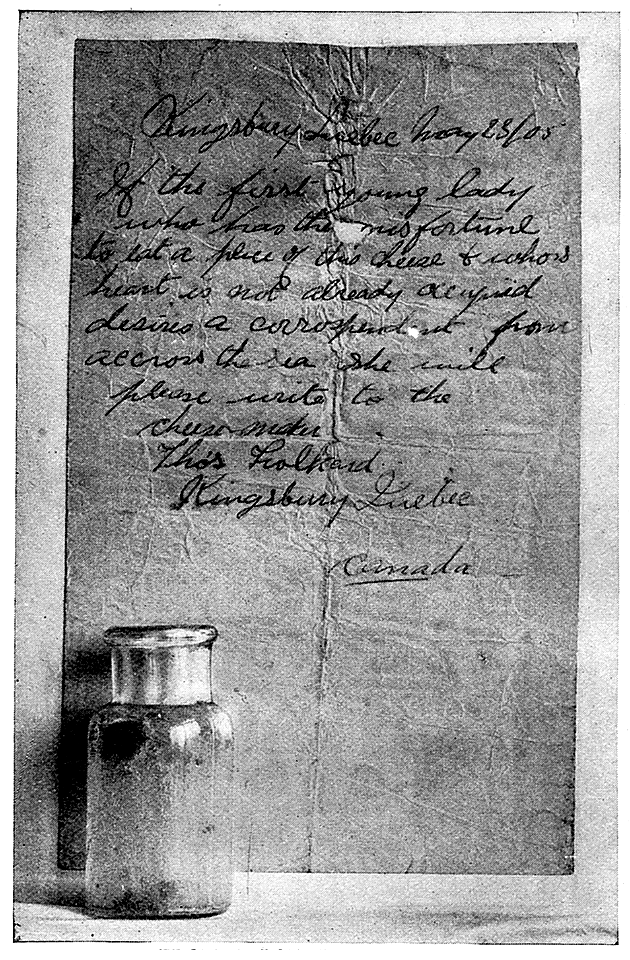 Kingsbury Quebec May
If the first young lady
who has the misfortune
to eat a peice of this cheese & whos
heart is not already ocupied
desires a corrospendent from
accross the sea she will
please write to the
cheese maker
Thos
Kingsbury Quebec
Canada